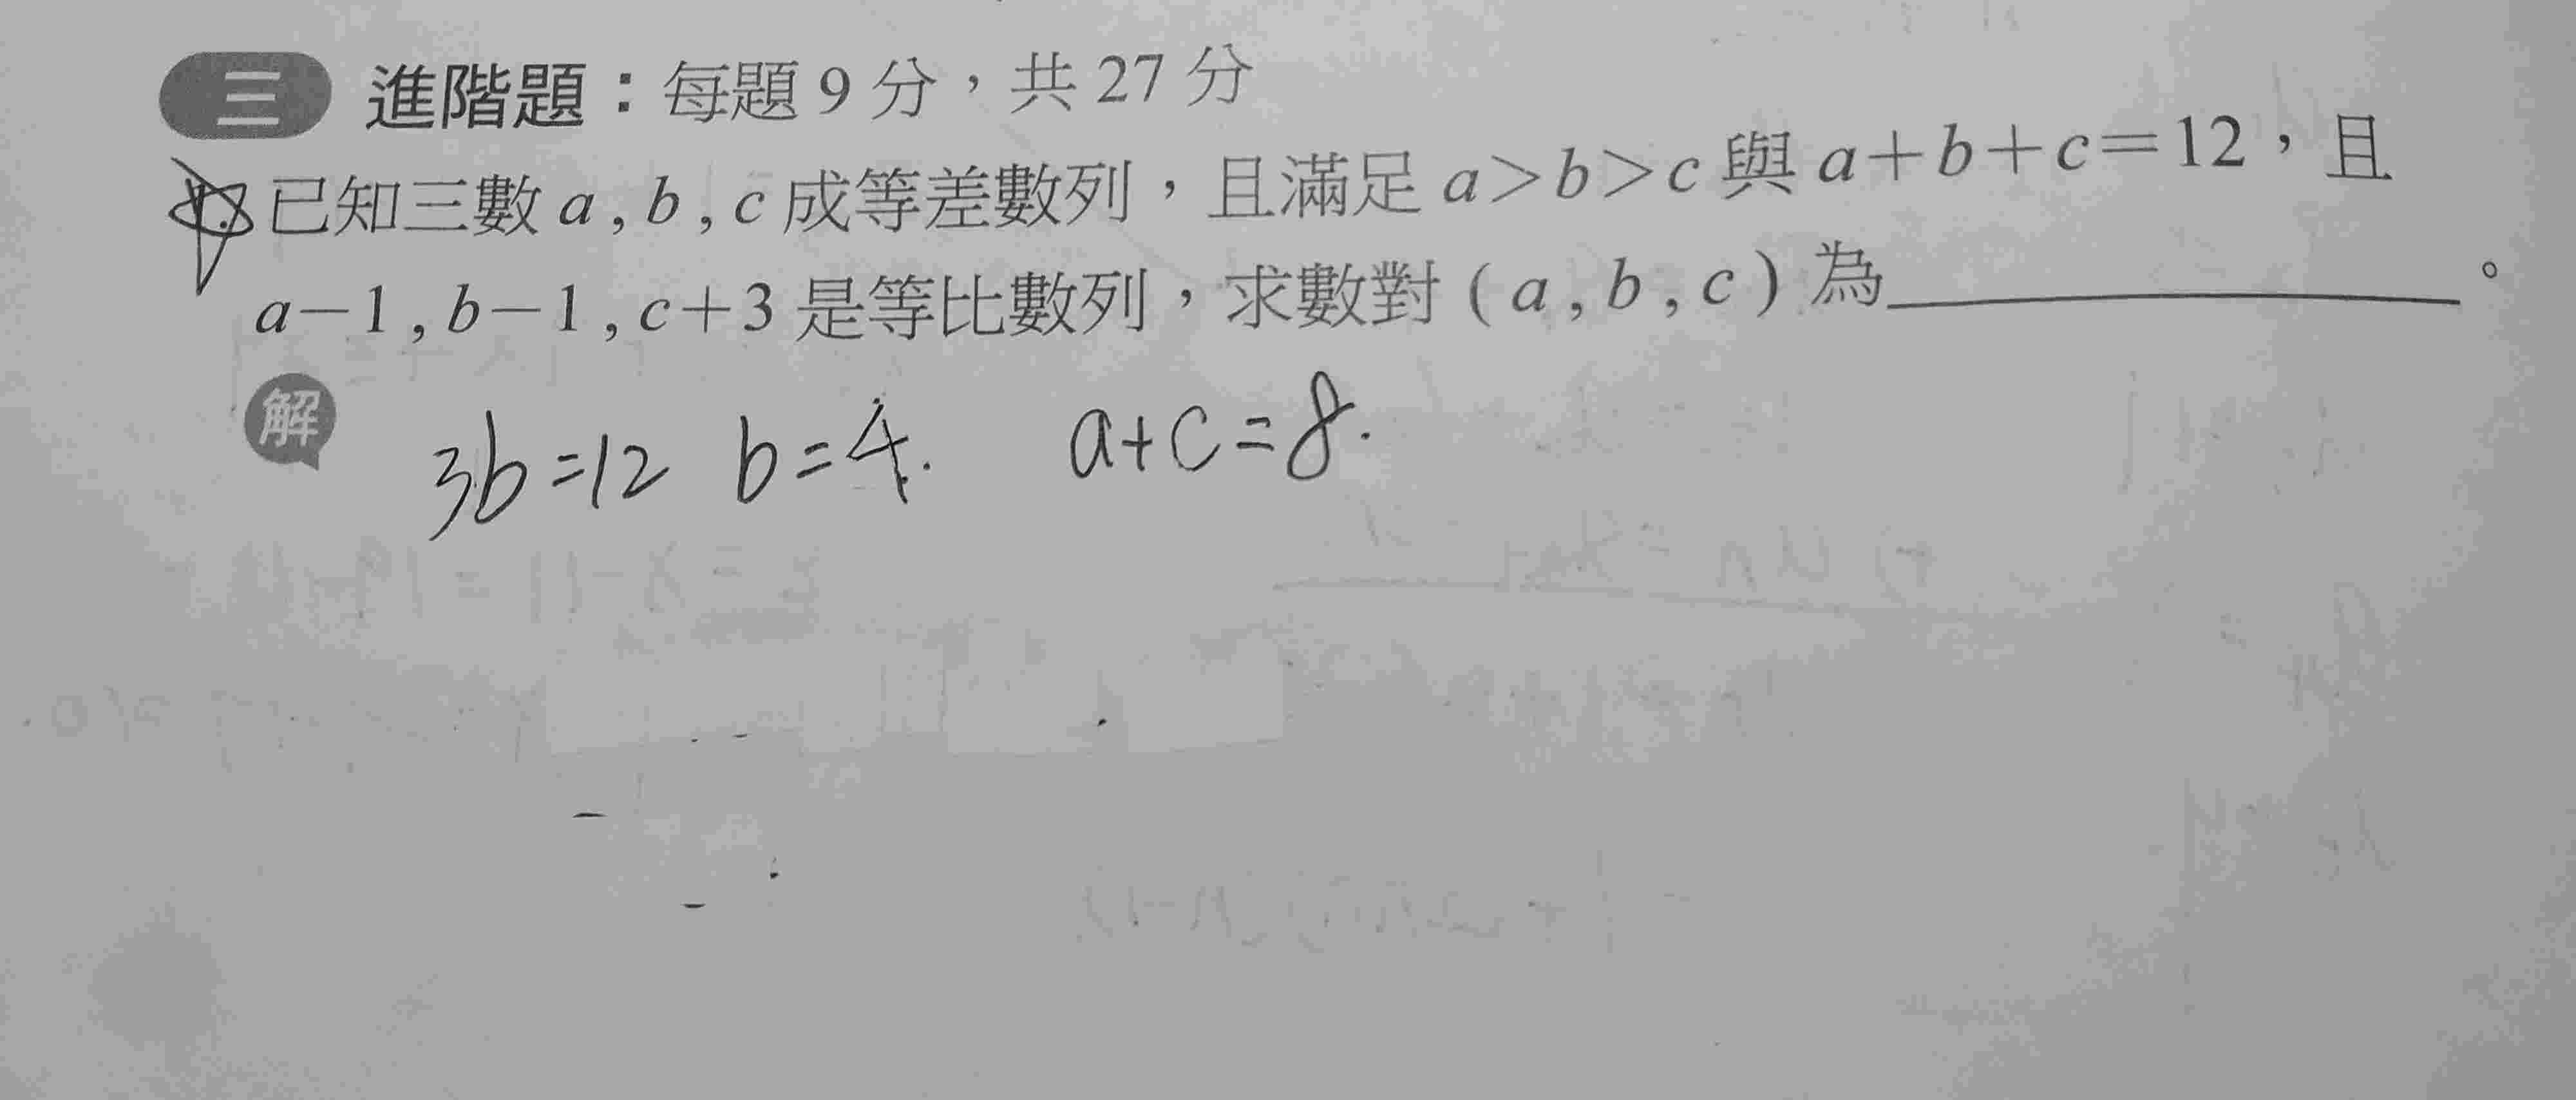 三 進階題：每題 9 分，共 27 分
已知三數 a , b , c 成等差數列，且滿足 a＞b＞c 與 a＋b＋c＝12，且
a－1 , b－1 , c＋3 是等比數列，求數對 ( a , b , c ) 為＿＿＿＿＿＿。
解
3b=12 b=4. a+c=8.